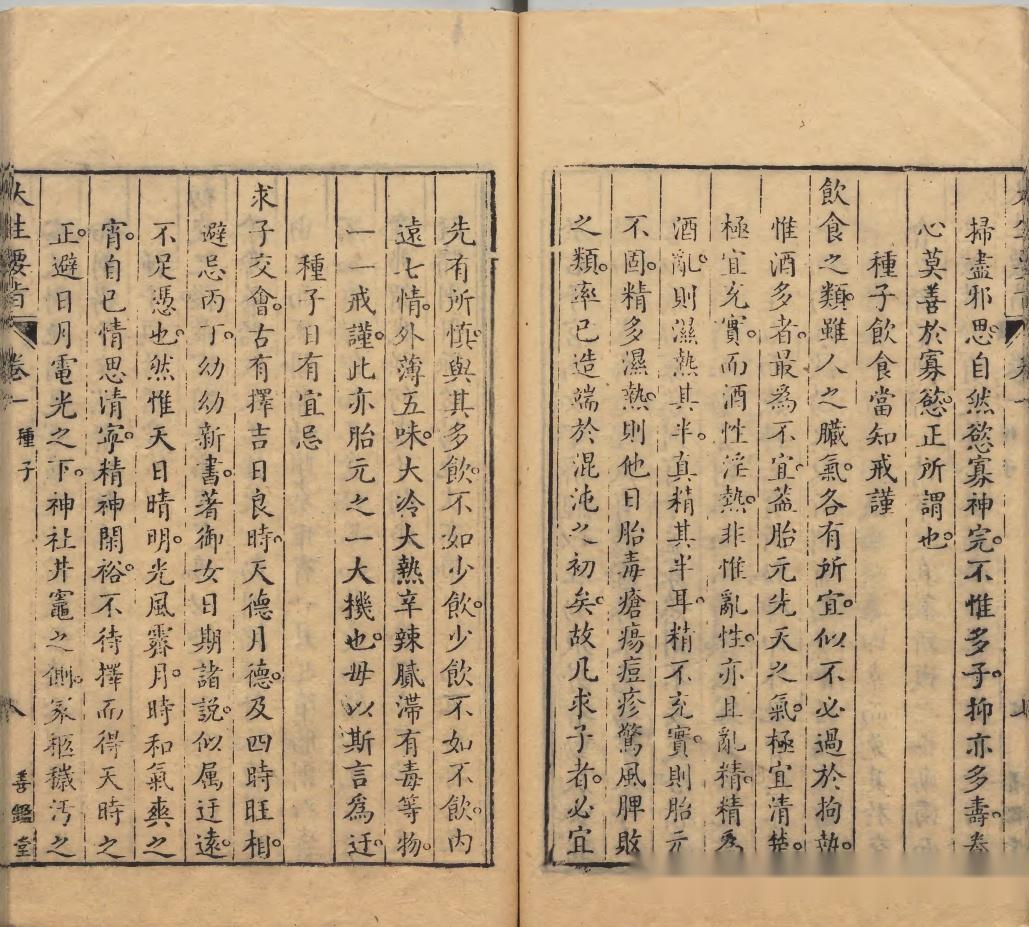 掃盡邪思。自然慾寡神完。不惟多子。抑亦多壽。養
心莫善於寡慾。正所謂也。
種子飲食當知戒謹
飲食之類。雖人之臟氣。各有所宜。似不必過於拘執。
惟酒多者。最爲不宜。葢胎元先天之氣。極宜清楚。
極宜充實。而酒性淫熱。非惟亂性。亦且亂精。精爲
酒亂。則濕熱其半。真精其半耳。精不充實。則胎元
不固。精多濕熱。則他日胎毒瘡瘍痘疹驚風脾敗
之類。率已造端於混沌之初矣。故凡求子者。必宜
先有所慎。與其多飲。不如少飲。少飲不如不飲。內
遠七情。外薄五味。大冷大熱辛辣膩滯有毒等物。
一一戒謹。此亦胎元之一大機也。毋以斯言爲迂
種子日有宜忌
求子交會。古有擇吉日良時。天德月德。及四時旺相。
避忌丙丁。幼幼新書。著御女日期諸説。似属迂遠。
不足憑也。然惟天日晴明。光風霽月。時和氣爽之
宵。自已情思清寧。精神閑裕。不待擇而得天時之
正。避日月電光之下。神社井竈之側。冢柩穢汚之
大生要旨
卷一
種子
八
善鑑堂